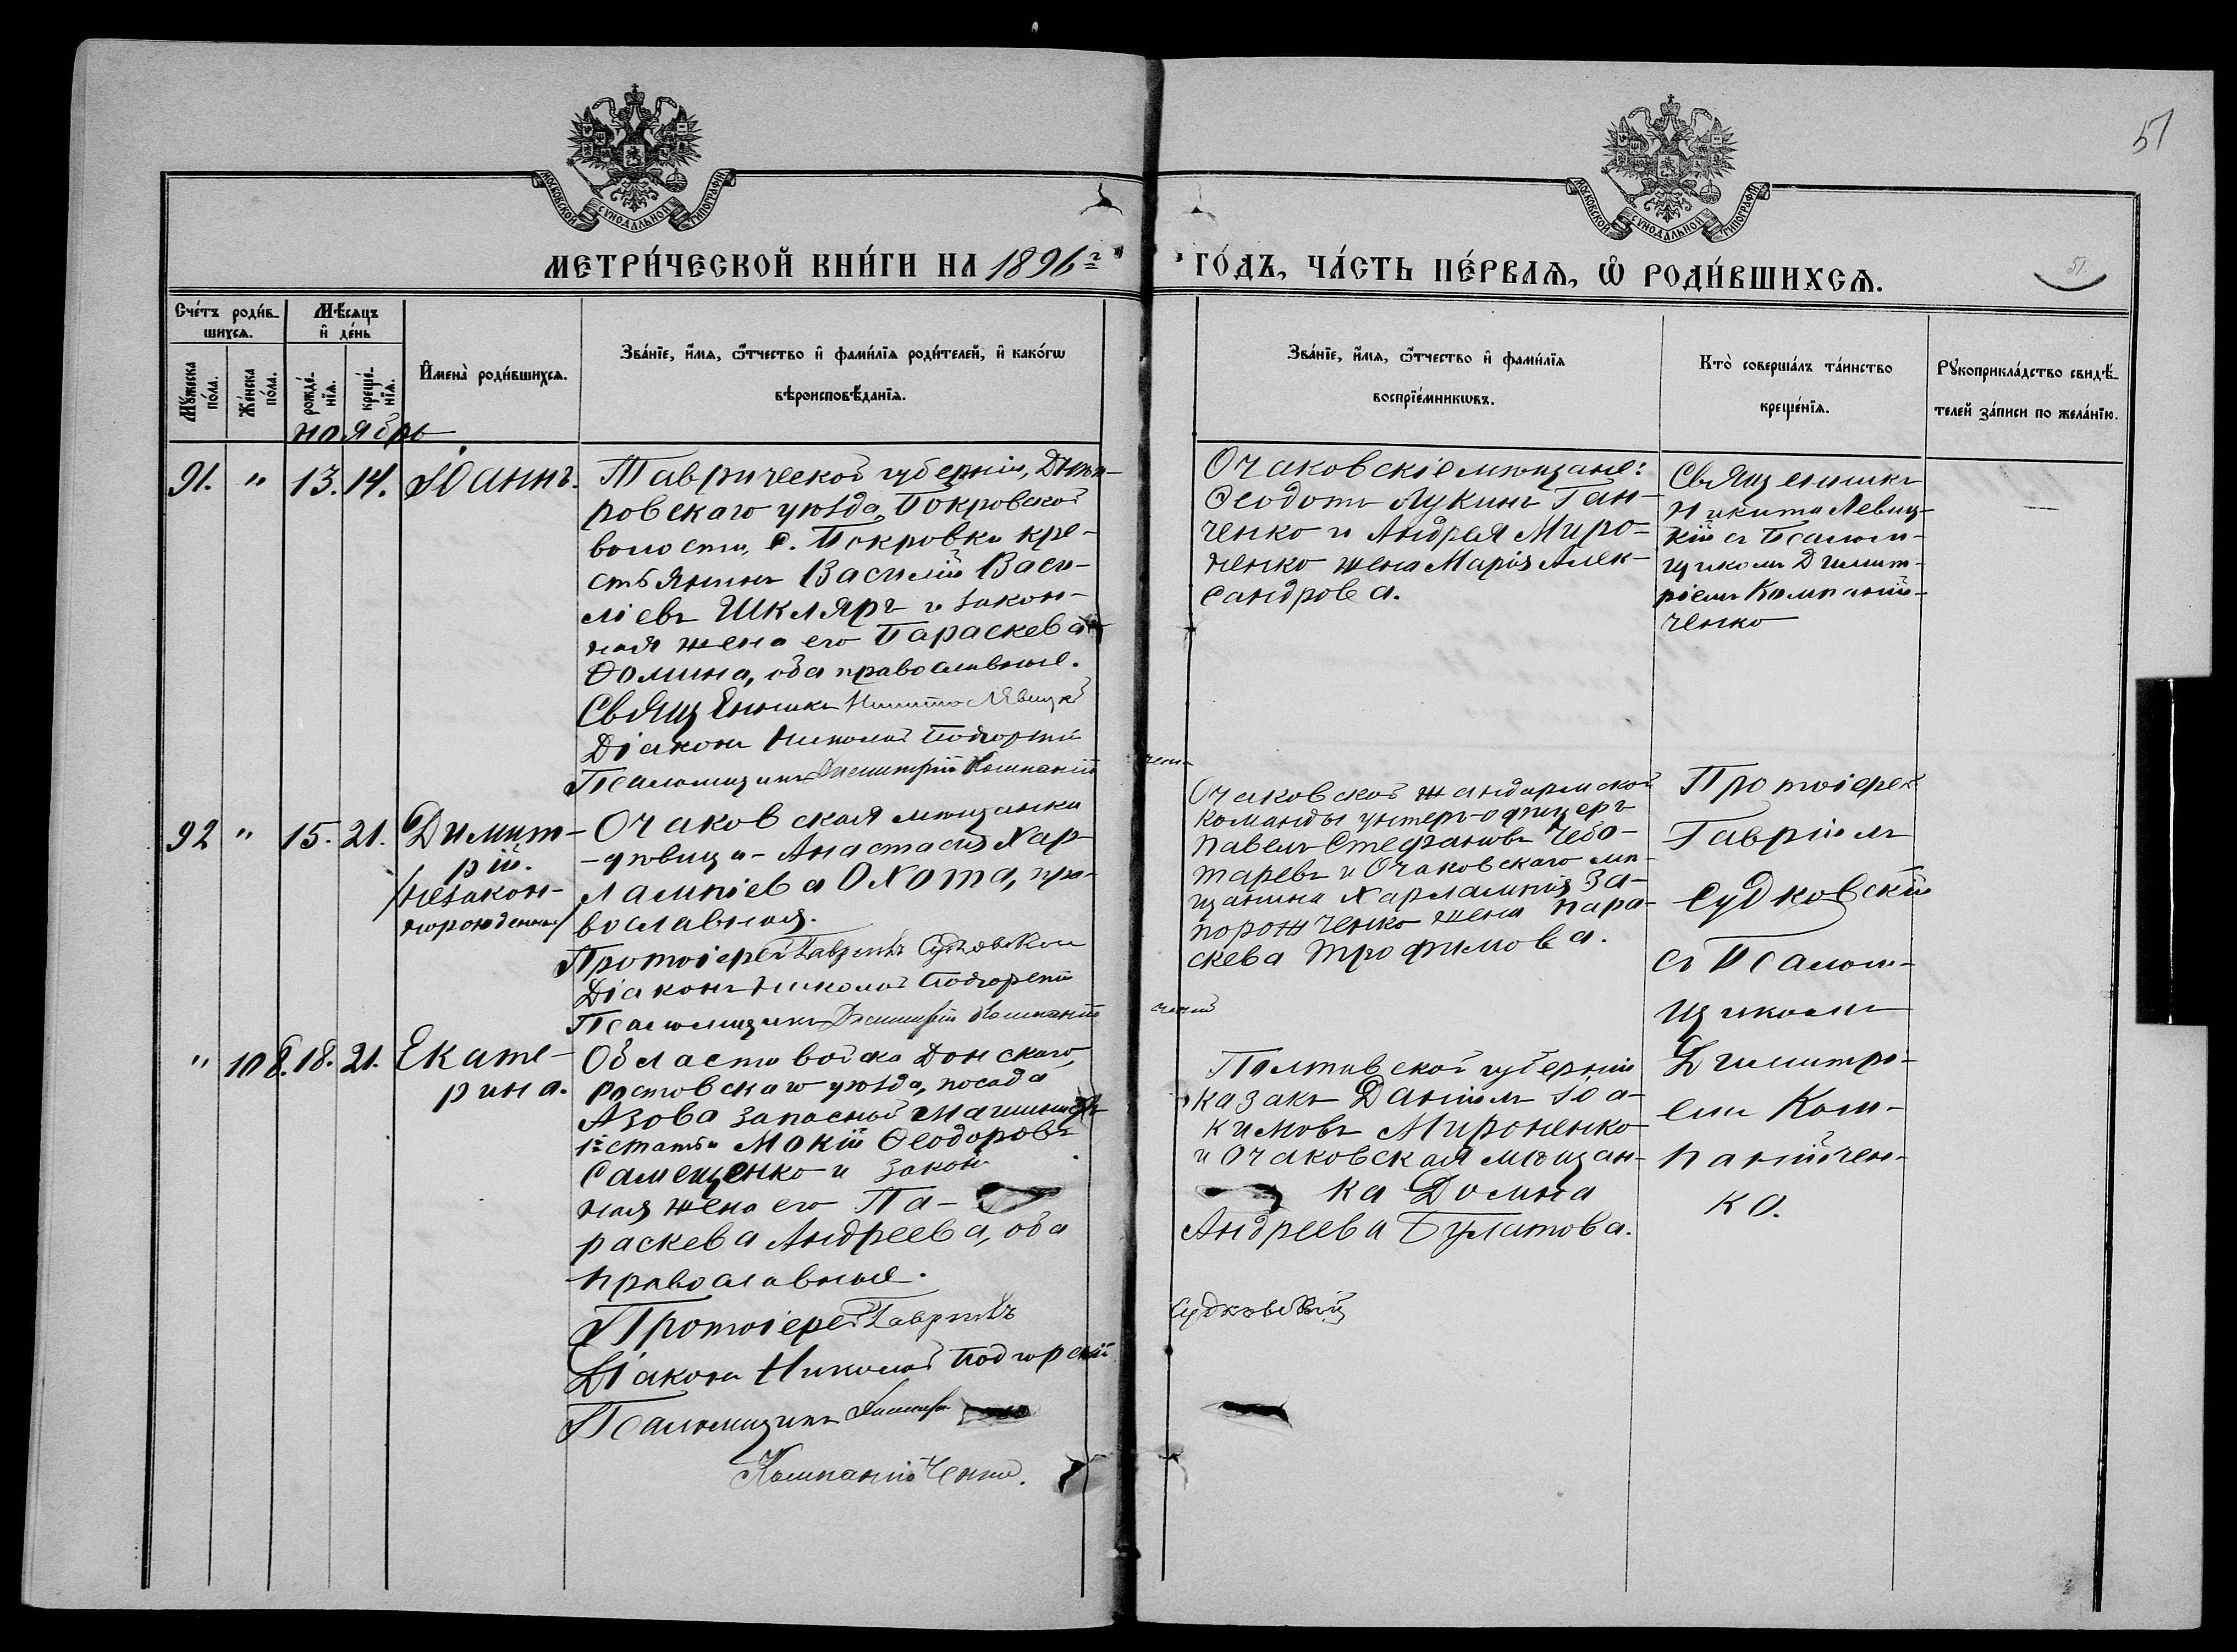 51
МОСКОВСКОЙ СѴНОДАЛЬНОЙ ТИПОГРАФІИ
МОСКОВСКОЙ СѴНОДАЛЬНОЙ ТИПОГРАФІИ
МЕТРИ́ЧЕСКОЙ КНИ́ГИ НА 1896 г.
ГО́ДЪ, ЧА́СТЬ ПЕ́РВАѦ, Ѽ РОДИ́ВШИХСѦ.
51.
Сче́тъ роди́в-
шихсѧ.
Мѣ́сѧцъ
и҆ де́нь
Мꙋ́жеска
по́ла.
Же́нска
по́ла.
рожде́-
нїѧ.
креще́-
нїѧ.
И҆мена̀ роди́вшихсѧ.
Зва́нїе, и҆́мѧ, ѻ҆́тчество и҆ фами́лїѧ роди́телей, и҆ како́гѡ
вѣроисповѣ́данїѧ.
Зва́нїе, и҆́мѧ, ѻ҆́тчество и҆ фами́лїѧ
воспрїе́мникѡвъ.
Кто̀ соверша́лъ та́инство
креще́нїѧ.
Рꙋкоприкла́дство свидѣ́-
телей за́писи по жела́нїю.
ноябрь
91. " 13. 14. Іоаннъ.
Таврической губерніи, Днѣп-
ровскаго уѣзда, Покровской
волости, с. Покровки кре-
стьянинъ Василій Васи-
ліевъ Шкляръ и закон-
ная жена его Параскева
Ѳомина, оба православные.
Священникъ Никита Левицкій
Діаконъ Николай Подгорскій
Псаломщикъ Димитрій Компаній
ченко
Очаковскіе мѣщане:
Ѳеодотъ Лукинъ Ган-
ченко и Андрея Миро-
ненко жена Марія Алек-
сандрова.
Священникъ
Никита Левиц-
кій съ Псалом-
щикомъ Димит-
ріемъ Компаній-
ченко
92 " 15. 21. Димит-
рій.
/незакон-
норожденный/
Очаковская мѣщанка
-дѣвица- Анастасія Хар-
лампіева Охота, пра-
вославная.
Протоіерей Гавріилъ Судковскій
Діаконъ Николай Подгорскій
Псаломщикъ Димитрій Компаній
Очаковской жандармской
команды унтеръ-офицеръ
Павелъ Стефановъ Чебо-
таревъ и Очаковскаго мѣ-
щанина Харлампія За-
порожченко жена Пара-
скева Трофимова.
Протоіерей
Гавріилъ
Судковскій
съ Псалом-
щикомъ
Димитрі-
емъ Ком-
панійчен-
ко.
" 108. 18. 21. Екате-
рина.
Области войска Донскаго,
Ростовскаго уѣзда, посада
Азова запасный машинистъ
1й статьи Мокій Ѳеодоровъ
Самещенко и закон-
ная жена его Па-
раскева Андреева, оба
православные.
Протоіерей Гавріилъ
Судковскій
Діаконъ Николай Подгорскій
Псаломщикъ Димитрій
Компанійченко.
Полтавской губерніи
казакъ Даніилъ Іоа-
кимовъ Мироненко
и Очаковская мѣщан-
ка Домна
Андреева Булатова.